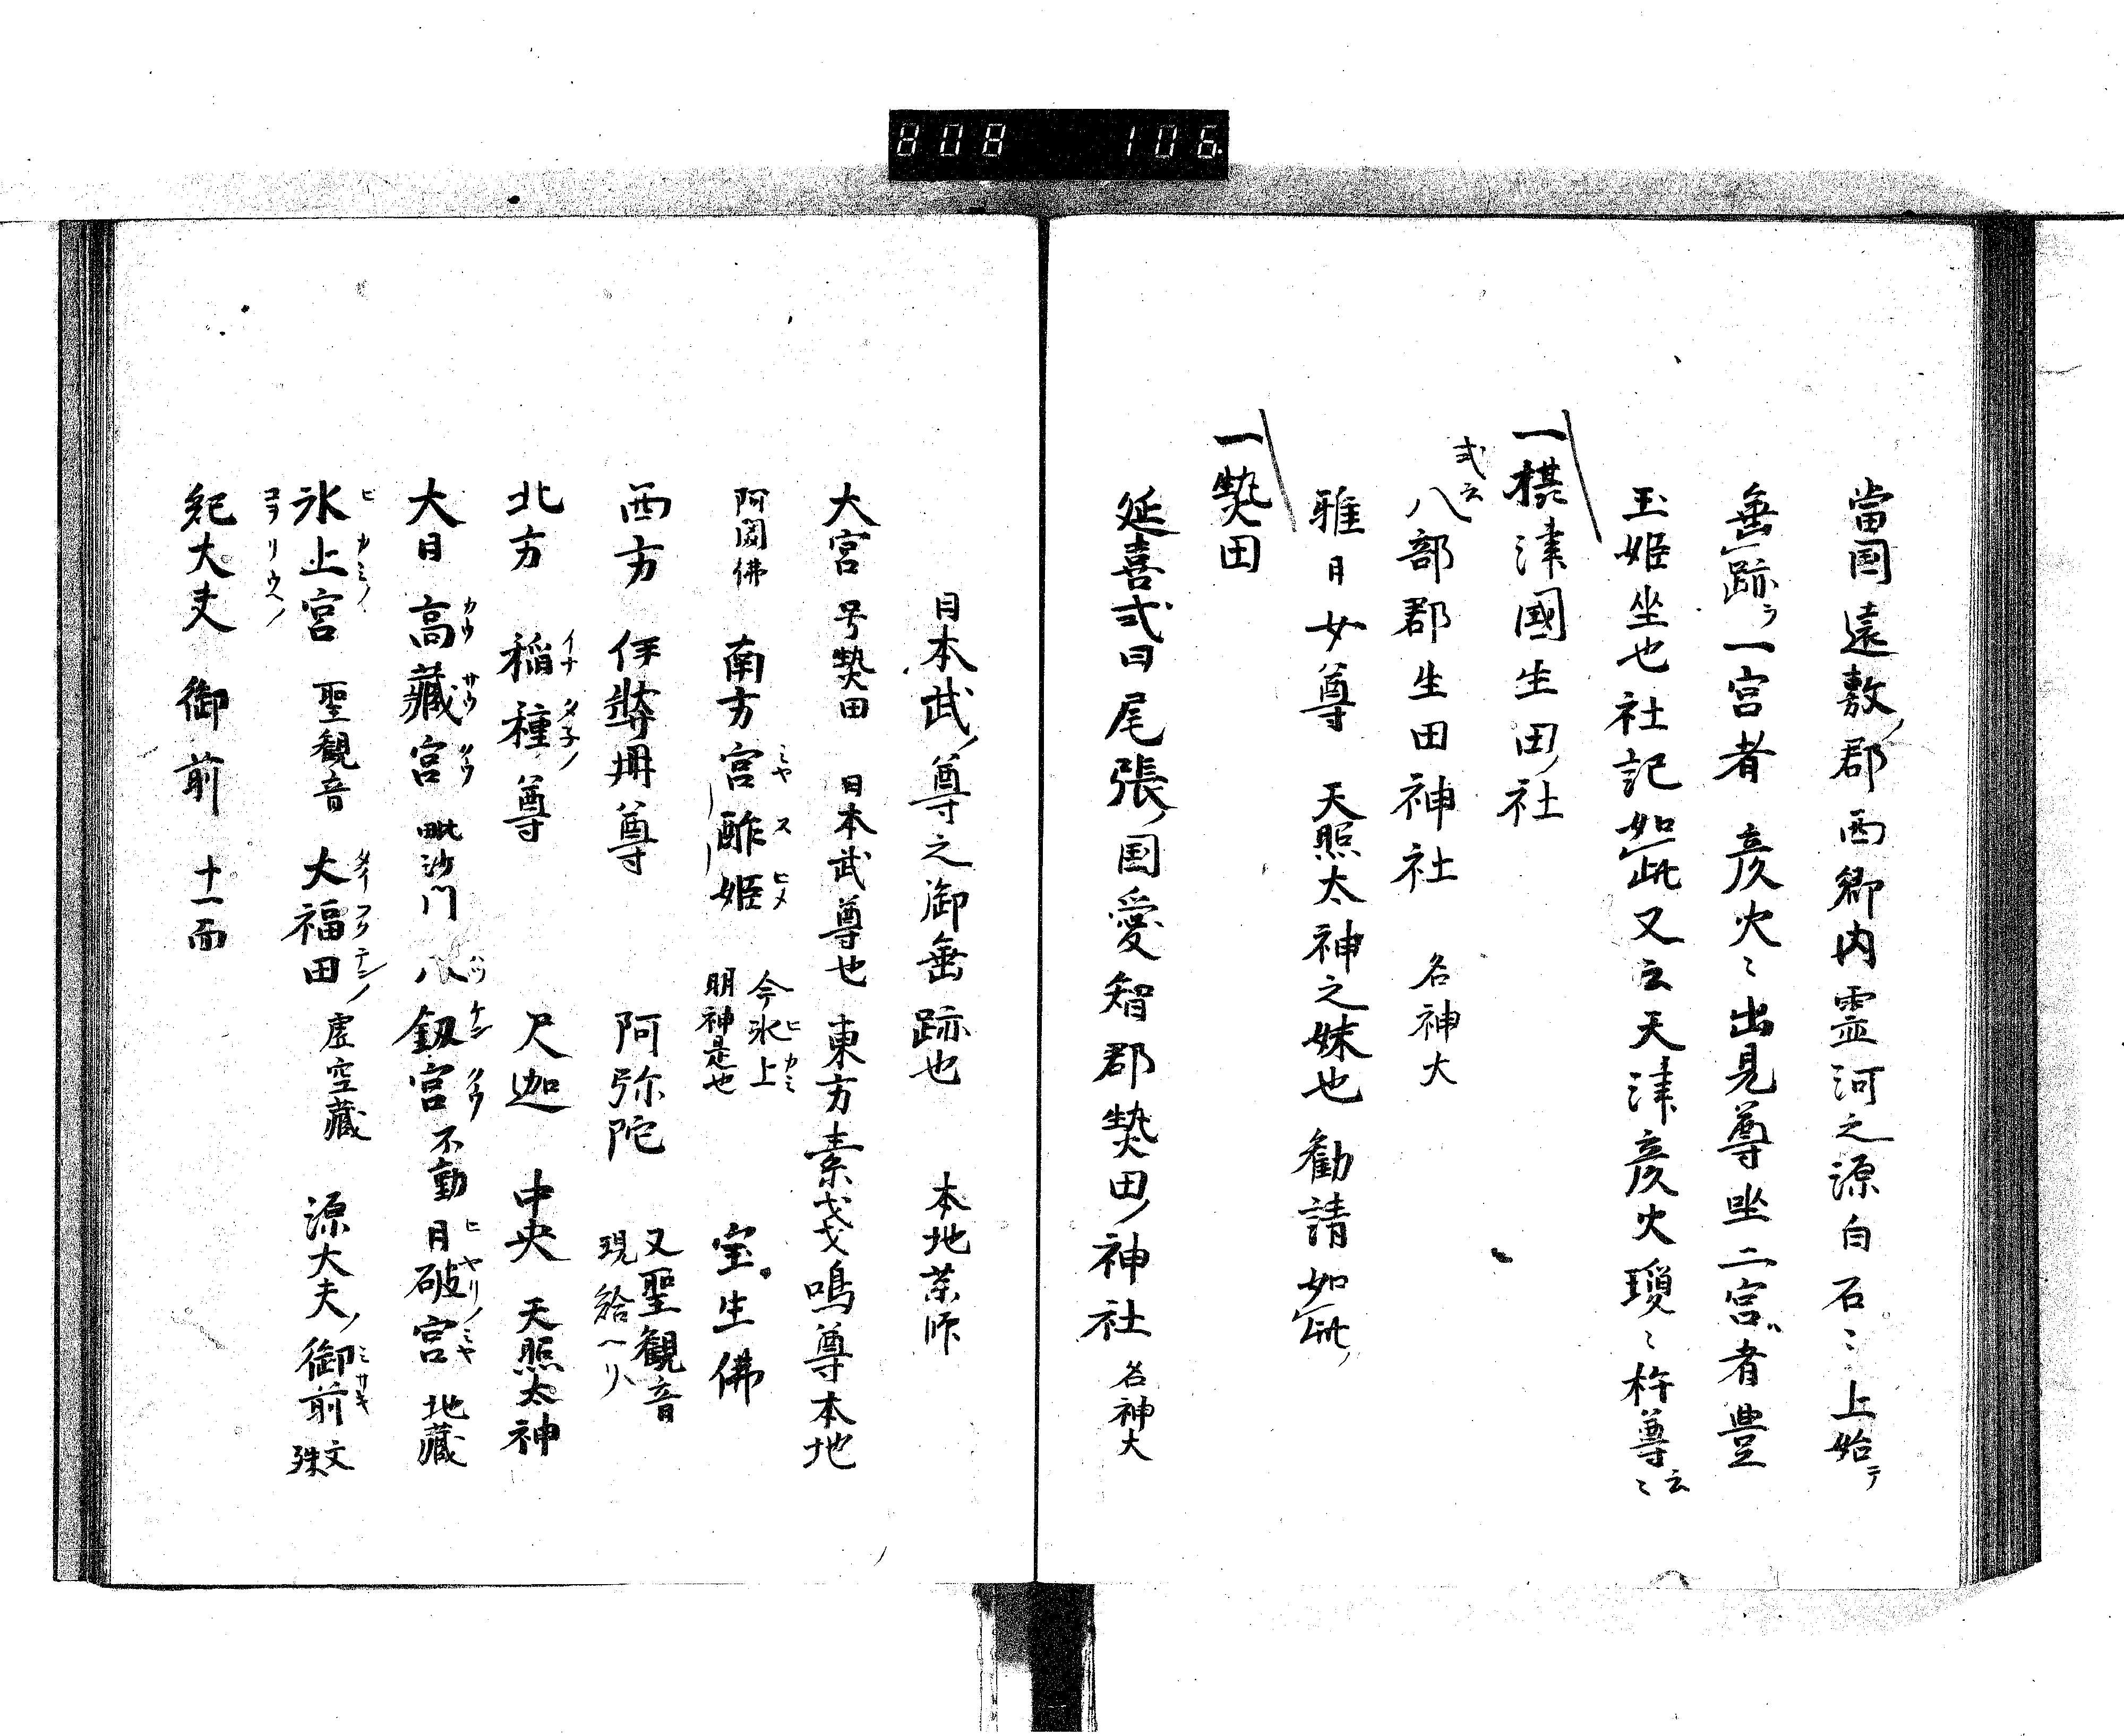 808 106
當国遠敷ノ郡西郷内霊河之源白石ミ上始テ
垂跡ヲ一宮者彦火ミ出見尊坐二宮ハ者豊
玉姫坐也社記如此又云天津彦火瓊ミ杵尊云ミ
一摂津國生田ノ社
式云八部郡生田神社 名神大
雅日女尊 天照太神之妹也勧請如此
一𤍠田
延喜式曰尾張ノ国愛智郡𤍠田ノ神社 名神大
日本武ノ尊之御垂跡也 本地薬師
大宮 号𤍠田 日本武尊也東方素戔嗚尊本地
阿閦佛 南方宮酢姫 今氷上明神是也 宝生佛
西方 伊弉冊尊 阿弥陀 又聖観音現給ヘリ
北方 稲種尊 尺迦 中央 天照太神
大日 高藏宮 毗沙門 八釼宮 不動 日破宮 地藏
氷上宮 聖観音 大福田 虚空藏 源大夫ノ御前 文殊
紀大夫 御前 十一面